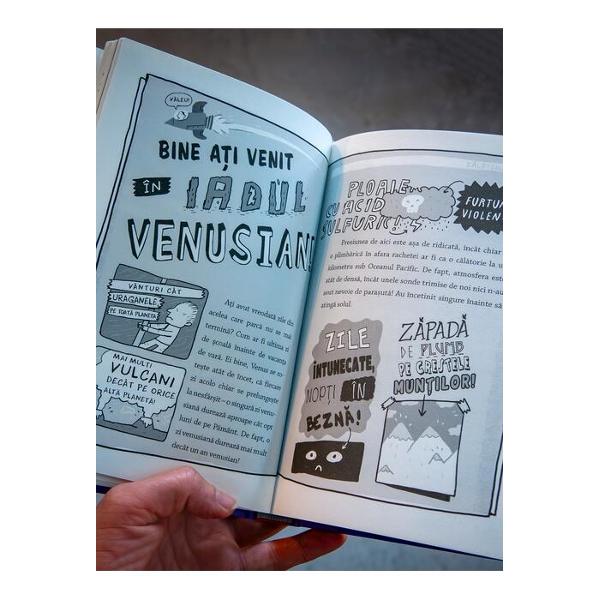 VĂLEU!
BINE AȚI VENIT
ÎN IADUL
VENUSIAN!
VÂNTURI CÂT
URAGANELE
PE TOATĂ PLANETA!
MAI MULȚI
VULCANI
DECÂT PE ORICE
ALTĂ PLANETĂ!
Ați avut vreodată zile din
acelea care parcă nu se mai
termină? Cum ar fi ultima zi
de școală înainte de vacanța
de vară. Ei bine, Venus se ro-
tește atât de încet, că fiecare
zi acolo chiar se prelungește
la nesfârșit – o singură zi venu-
siană durează aproape cât opt
luni de pe Pământ. De fapt, o
zi venusiană durează mai mult
decât un an venusian!
PLOAIE
CU ACID
SULFURIC!
FURTUNI
VIOLENTE
Presiunea de aici este așa de ridicată, încât chiar
o plimbărică în afara rachetei ar fi ca o călătorie la u
kilometru sub Oceanul Pacific. De fapt, atmosfera este
atât de densă, încât unele sonde trimise de noi nici n-au
avut nevoie de parașută! Au încetinit singure înainte să
atingă solul.
ZILE
ÎNTUNECATE,
NOPȚI ÎN
BEZNĂ!
ZĂPADĂ
DE PLUMB
PE CRESTELE
MUNȚILOR!